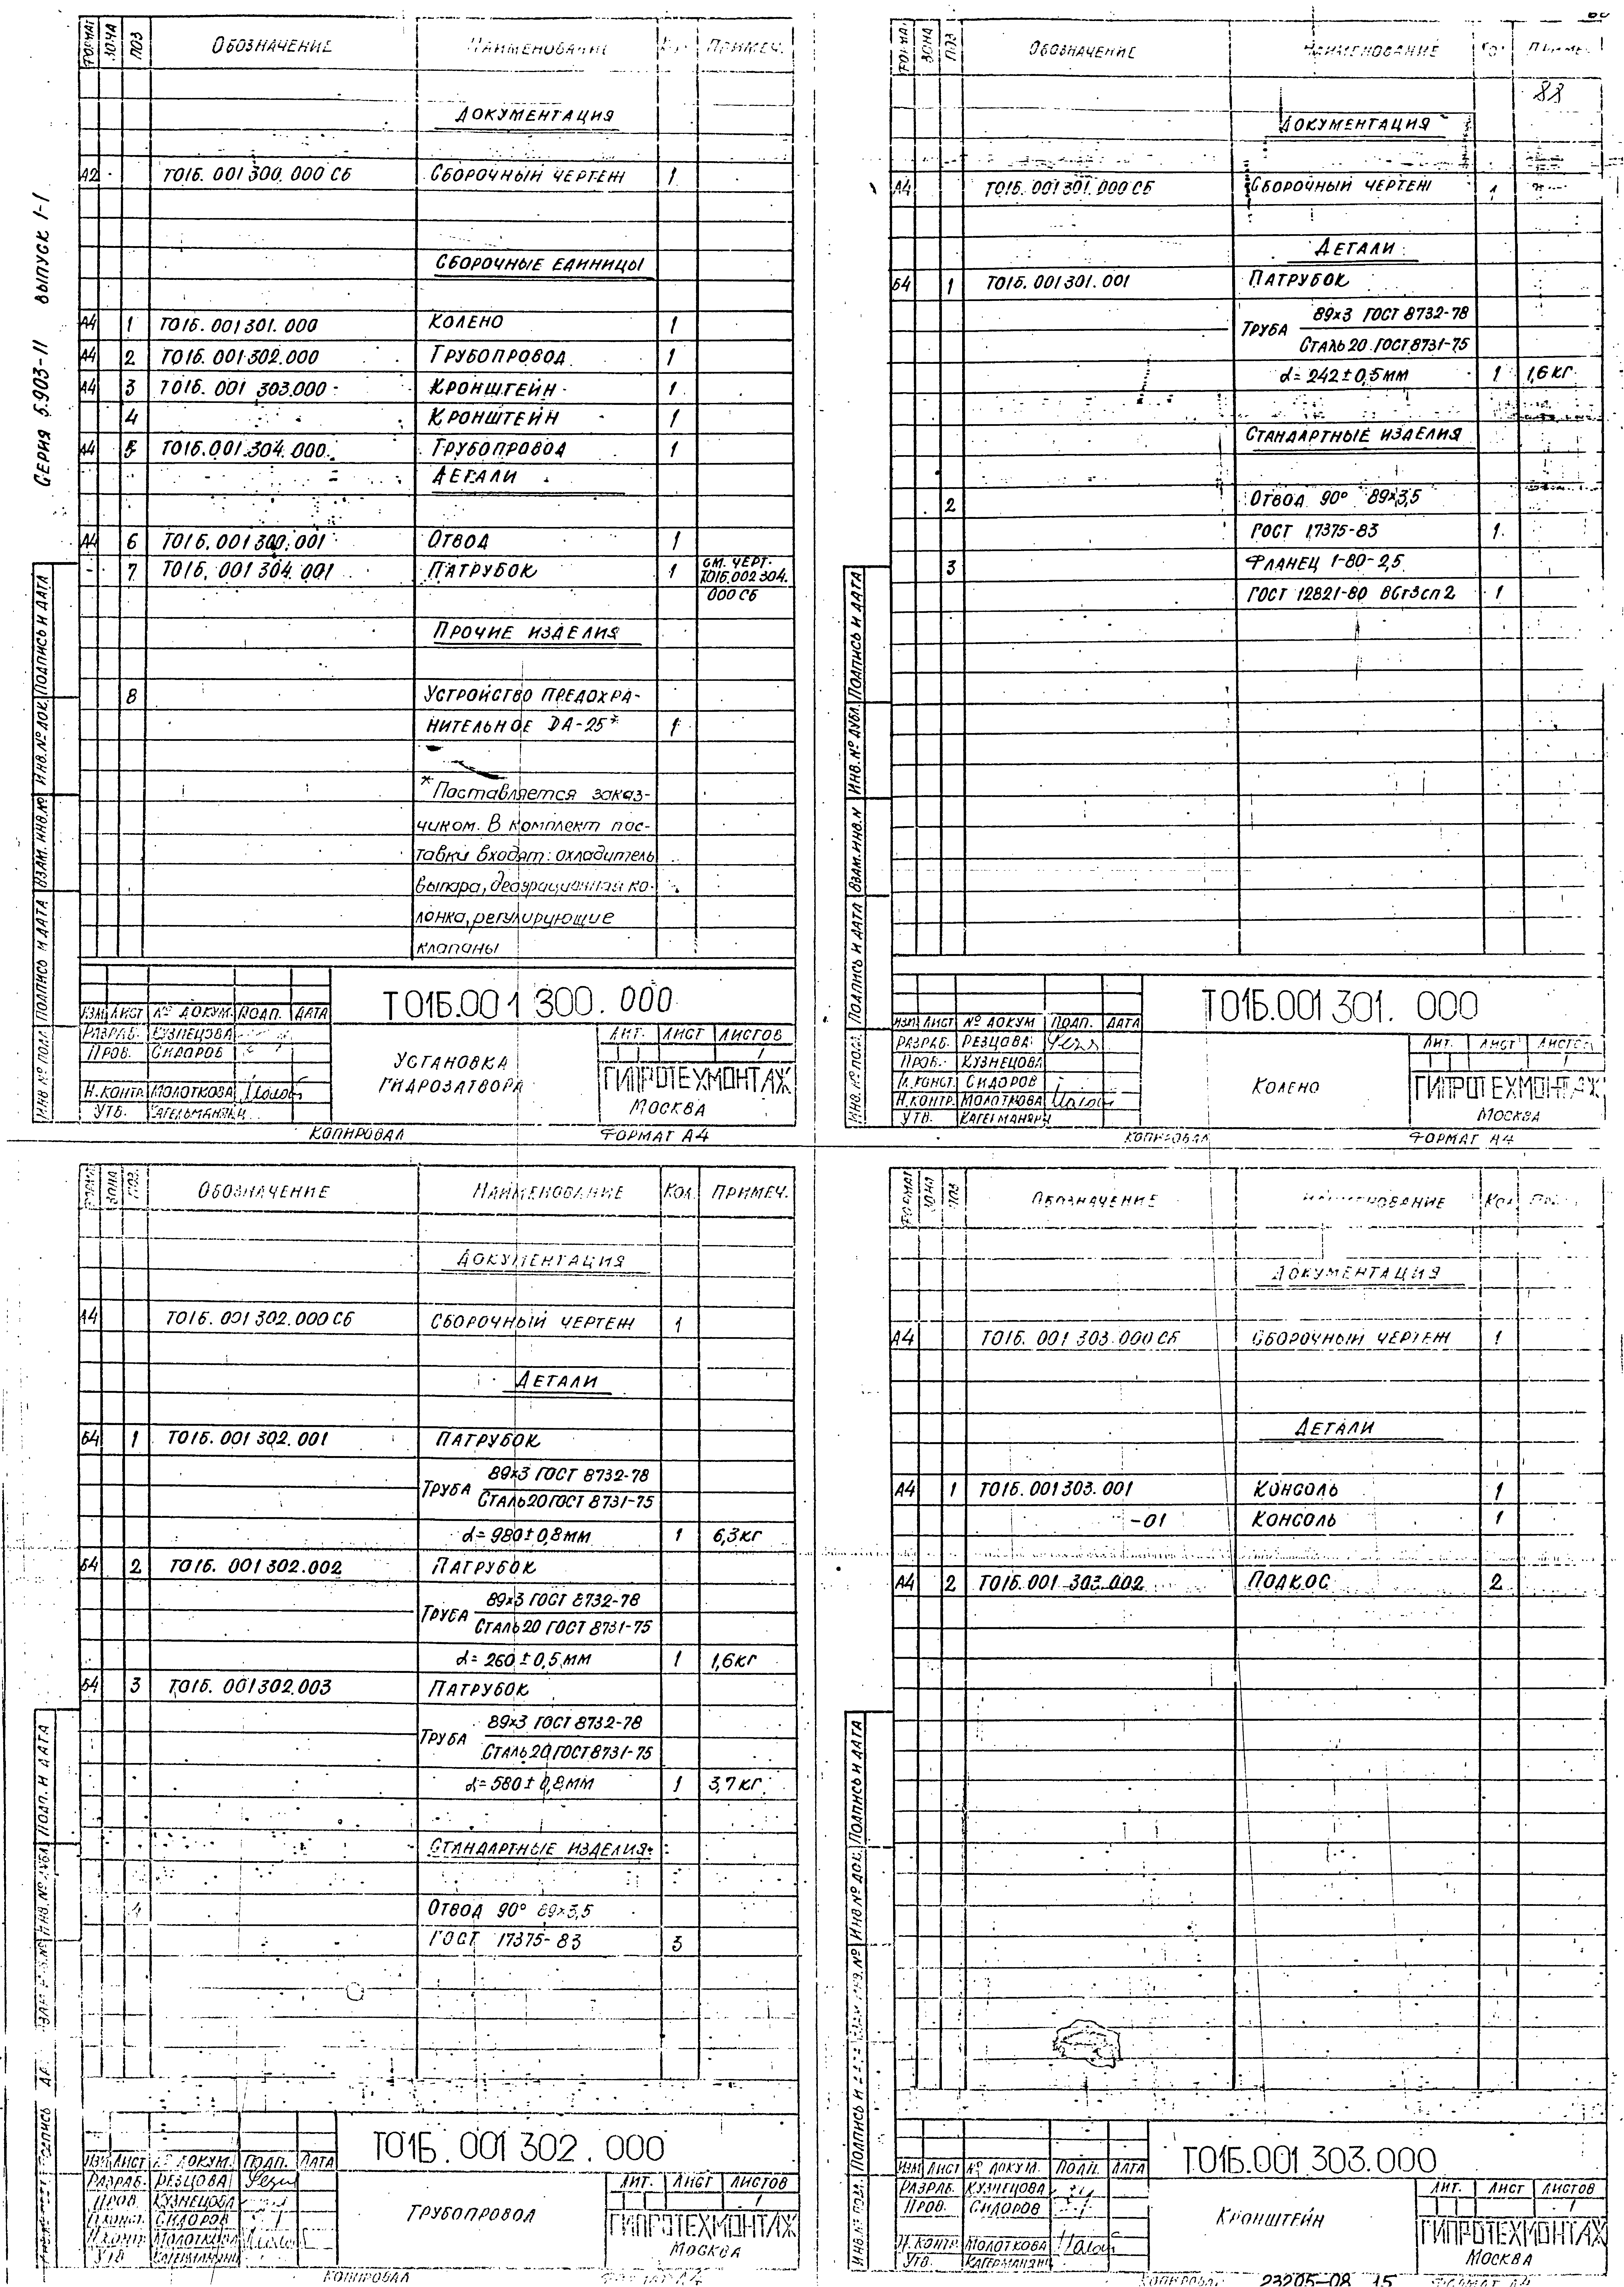 Серия 5.903-11 выпуск 1-1
ФОРМАТ ЗОНА ПОЗ ОБОЗНАЧЕНИЕ НАИМЕНОВАНИЕ ПРИМЕЧ.
ДОКУМЕНТАЦИЯ
А2 Т01Б.001 300.000 СБ СБОРОЧНЫЙ ЧЕРТЕЖ 1
СБОРОЧНЫЕ ЕДИНИЦЫ
А4 1 Т01Б.001 301.000 КОЛЕНО 1
А4 2 Т01Б.001 302.000 ТРУБОПРОВОД 1
А4 3 Т01Б.001 303.000 КРОНШТЕЙН 1
4 КРОНШТЕЙН 1
А4 5 Т01Б.001 304.000 ТРУБОПРОВОД 1
ДЕТАЛИ
А4 6 Т01Б.001 300.001 ОТВОД 1
7 Т01Б.001 304.001 ПАТРУБОК 1 СМ. ЧЕРТ.
Т01Б.002 304.
000 СБ
ПРОЧИЕ ИЗДЕЛИЯ
8 УСТРОЙСТВО ПРЕДОХРА-
НИТЕЛЬНОЕ DA-25* 1
*Поставляется заказ-
чиком. В комплект пос-
тавки входят: охладитель
выпара, деаэрационная ко-
лонка, регулирующие
клапаны
ИНВ.№ ПОДЛ ПОДПИСЬ И ДАТА ВЗАМ. ИНВ.№ ИНВ.№ ДОК ПОДПИСЬ И ДАТА
Т01Б.001 300.000
ИЗМ ЛИСТ № ДОКУМ. ПОДП. ДАТА
РАЗРАБ. КУЗНЕЦОВА
ПРОВ. СИДОРОВ
Н.КОНТР. МОЛОТКОВА
УТВ. КАГЕРМАНЯНЦ
УСТАНОВКА
ГИДРОЗАТВОРА
ЛИТ. ЛИСТ ЛИСТОВ
1
ГИПРОТЕХМОНТАЖ
МОСКВА
КОПИРОВАЛ ФОРМАТ А4
ФОРМАТ ЗОНА ПОЗ ОБОЗНАЧЕНИЕ НАИМЕНОВАНИЕ
88
ДОКУМЕНТАЦИЯ
А4 Т01Б.001 301.000 СБ СБОРОЧНЫЙ ЧЕРТЕЖ 1
ДЕТАЛИ
Б4 1 Т01Б.001 301.001 ПАТРУБОК
ТРУБА 89×3 ГОСТ 8732-78
СТАЛЬ 20 ГОСТ 8731-75
ℓ=242±0,5мм 1 1,6кг
СТАНДАРТНЫЕ ИЗДЕЛИЯ
2 ОТВОД 90° 89×3,5
ГОСТ 17375-83 1
3 ФЛАНЕЦ 1-80-2,5
ГОСТ 12821-80 ВСт3сп2 1
ИНВ.№ ПОДЛ. ПОДПИСЬ И ДАТА ВЗАМ.ИНВ.№ ИНВ.№ ДУБЛ. ПОДПИСЬ И ДАТА
Т01Б.001 301.000
ИЗМ ЛИСТ № ДОКУМ ПОДП. ДАТА
РАЗРАБ. РЕЗЦОВА
ПРОВ. КУЗНЕЦОВА
ГЛ.КОНСТ. СИДОРОВ
Н.КОНТР. МОЛОТКОВА
УТВ. КАГЕРМАНЯНЦ
КОЛЕНО
ЛИТ. ЛИСТ ЛИСТОВ
1
ГИПРОТЕХМОНТАЖ
МОСКВА
КОПИРОВАЛ ФОРМАТ А4
ФОРМАТ ЗОНА ПОЗ. ОБОЗНАЧЕНИЕ НАИМЕНОВАНИЕ КОЛ. ПРИМЕЧ.
ДОКУМЕНТАЦИЯ
А4 Т01Б.001 302.000 СБ СБОРОЧНЫЙ ЧЕРТЕЖ 1
ДЕТАЛИ
Б4 1 Т01Б.001 302.001 ПАТРУБОК
ТРУБА 89×3 ГОСТ 8732-78
СТАЛЬ 20 ГОСТ 8731-75
ℓ=980±0,8мм 1 6,3кг
Б4 2 Т01Б.001 302.002 ПАТРУБОК
ТРУБА 89×3 ГОСТ 8732-78
СТАЛЬ 20 ГОСТ 8731-75
ℓ=260±0,5мм 1 1,6кг
Б4 3 Т01Б.001 302.003 ПАТРУБОК
ТРУБА 89×3 ГОСТ 8732-78
СТАЛЬ 20 ГОСТ 8731-75
ℓ=580±0,8мм 1 3,7кг
СТАНДАРТНЫЕ ИЗДЕЛИЯ
4 ОТВОД 90° 89×3,5
ГОСТ 17375-83 3
ПОДП. И ДАТА
Т01Б.001 302.000
ИЗМ ЛИСТ № ДОКУМ. ПОДП. ДАТА
РАЗРАБ. РЕЗЦОВА
ПРОВ. КУЗНЕЦОВА
ГЛ.КОНСТ. СИДОРОВ
Н.КОНТР. МОЛОТКОВА
УТВ КАГЕРМАНЯНЦ
ТРУБОПРОВОД
ЛИТ. ЛИСТ ЛИСТОВ
1
ГИПРОТЕХМОНТАЖ
МОСКВА
КОПИРОВАЛ ФОРМАТ А4
ФОРМАТ ЗОНА ПОЗ ОБОЗНАЧЕНИЕ НАИМЕНОВАНИЕ КОЛ
ДОКУМЕНТАЦИЯ
А4 Т01Б.001 303.000 СБ СБОРОЧНЫЙ ЧЕРТЕЖ 1
ДЕТАЛИ
А4 1 Т01Б.001 303.001 КОНСОЛЬ 1
-01 КОНСОЛЬ 1
А4 2 Т01Б.001 303.002 ПОДКОС 2
ИНВ.№ ПОДЛ. ПОДПИСЬ И ИНВ.№ ДОК. ПОДПИСЬ И ДАТА
Т01Б.001 303.000
ИЗМ ЛИСТ № ДОКУМ. ПОДП. ДАТА
РАЗРАБ. КУЗНЕЦОВА
ПРОВ. СИДОРОВ
Н.КОНТР. МОЛОТКОВА
УТВ. КАГЕРМАНЯНЦ
КРОНШТЕЙН
ЛИТ. ЛИСТ ЛИСТОВ
1
ГИПРОТЕХМОНТАЖ
МОСКВА
КОПИРОВАЛ 23205-08 15 ФОРМАТ А4